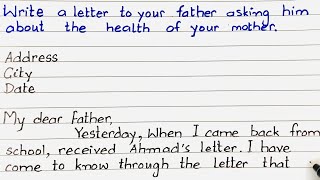 Write a letter to your father asking him
about the health of your mother.
Address
City
Date
My dear Father,
Yesterday, When I came back from
school, received Ahmad's letter. I have
come to know through the letter that